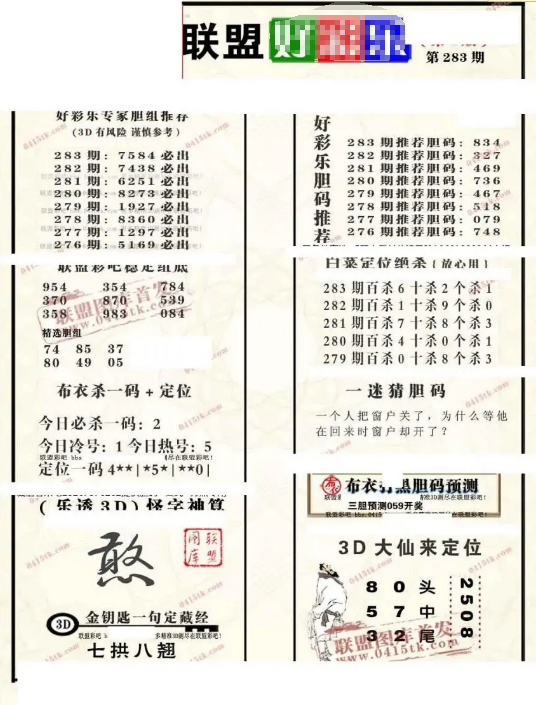 联盟好彩乐
第283期
好彩乐专家胆组推荐
(3D有风险 谨慎参考)
283期: 7584必出
282期: 7438必出
281期: 6251必出
280期: 8273必出
279期: 1927必出
278期: 8360必出
277期: 1297必出
276期: 5169必出
好彩乐胆码推荐
283期推荐胆码: 834
282期推荐胆码: 327
281期推荐胆码: 469
280期推荐胆码: 736
279期推荐胆码: 467
278期推荐胆码: 518
277期推荐胆码: 079
276期推荐胆码: 748
联盟彩吧稳定组底
954 354 784
370 870 539
358 983 084
精选胆组
74 85 37
80 49 05
联盟图库首发
www.0415tk.com
白菜定位绝杀(放心用)
283期百杀6十杀2个杀1
282期百杀1十杀9个杀0
281期百杀7十杀8个杀3
280期百杀4十杀0个杀1
279期百杀0十杀8个杀3
布衣杀一码+定位
今日必杀一码: 2
今日冷号: 1 今日热号: 5
联盟彩吧! bbs
尽在联盟彩吧!
定位一码4**|*5*|**0|
一迷猜胆码
一个人把窗户关了，为什么等他
在回来时窗户却开了？
(乐透3D)怪字神算
憨
联盟图库
3D 金钥匙一句定藏经
多精准3D测尽在联盟彩吧!
七拱八翘
胆码预测
三胆预测059开奖
3D大仙来定位
8 0 头
5 7 中
3 2 尾
2508
联盟图库首发
www.0415tk.com